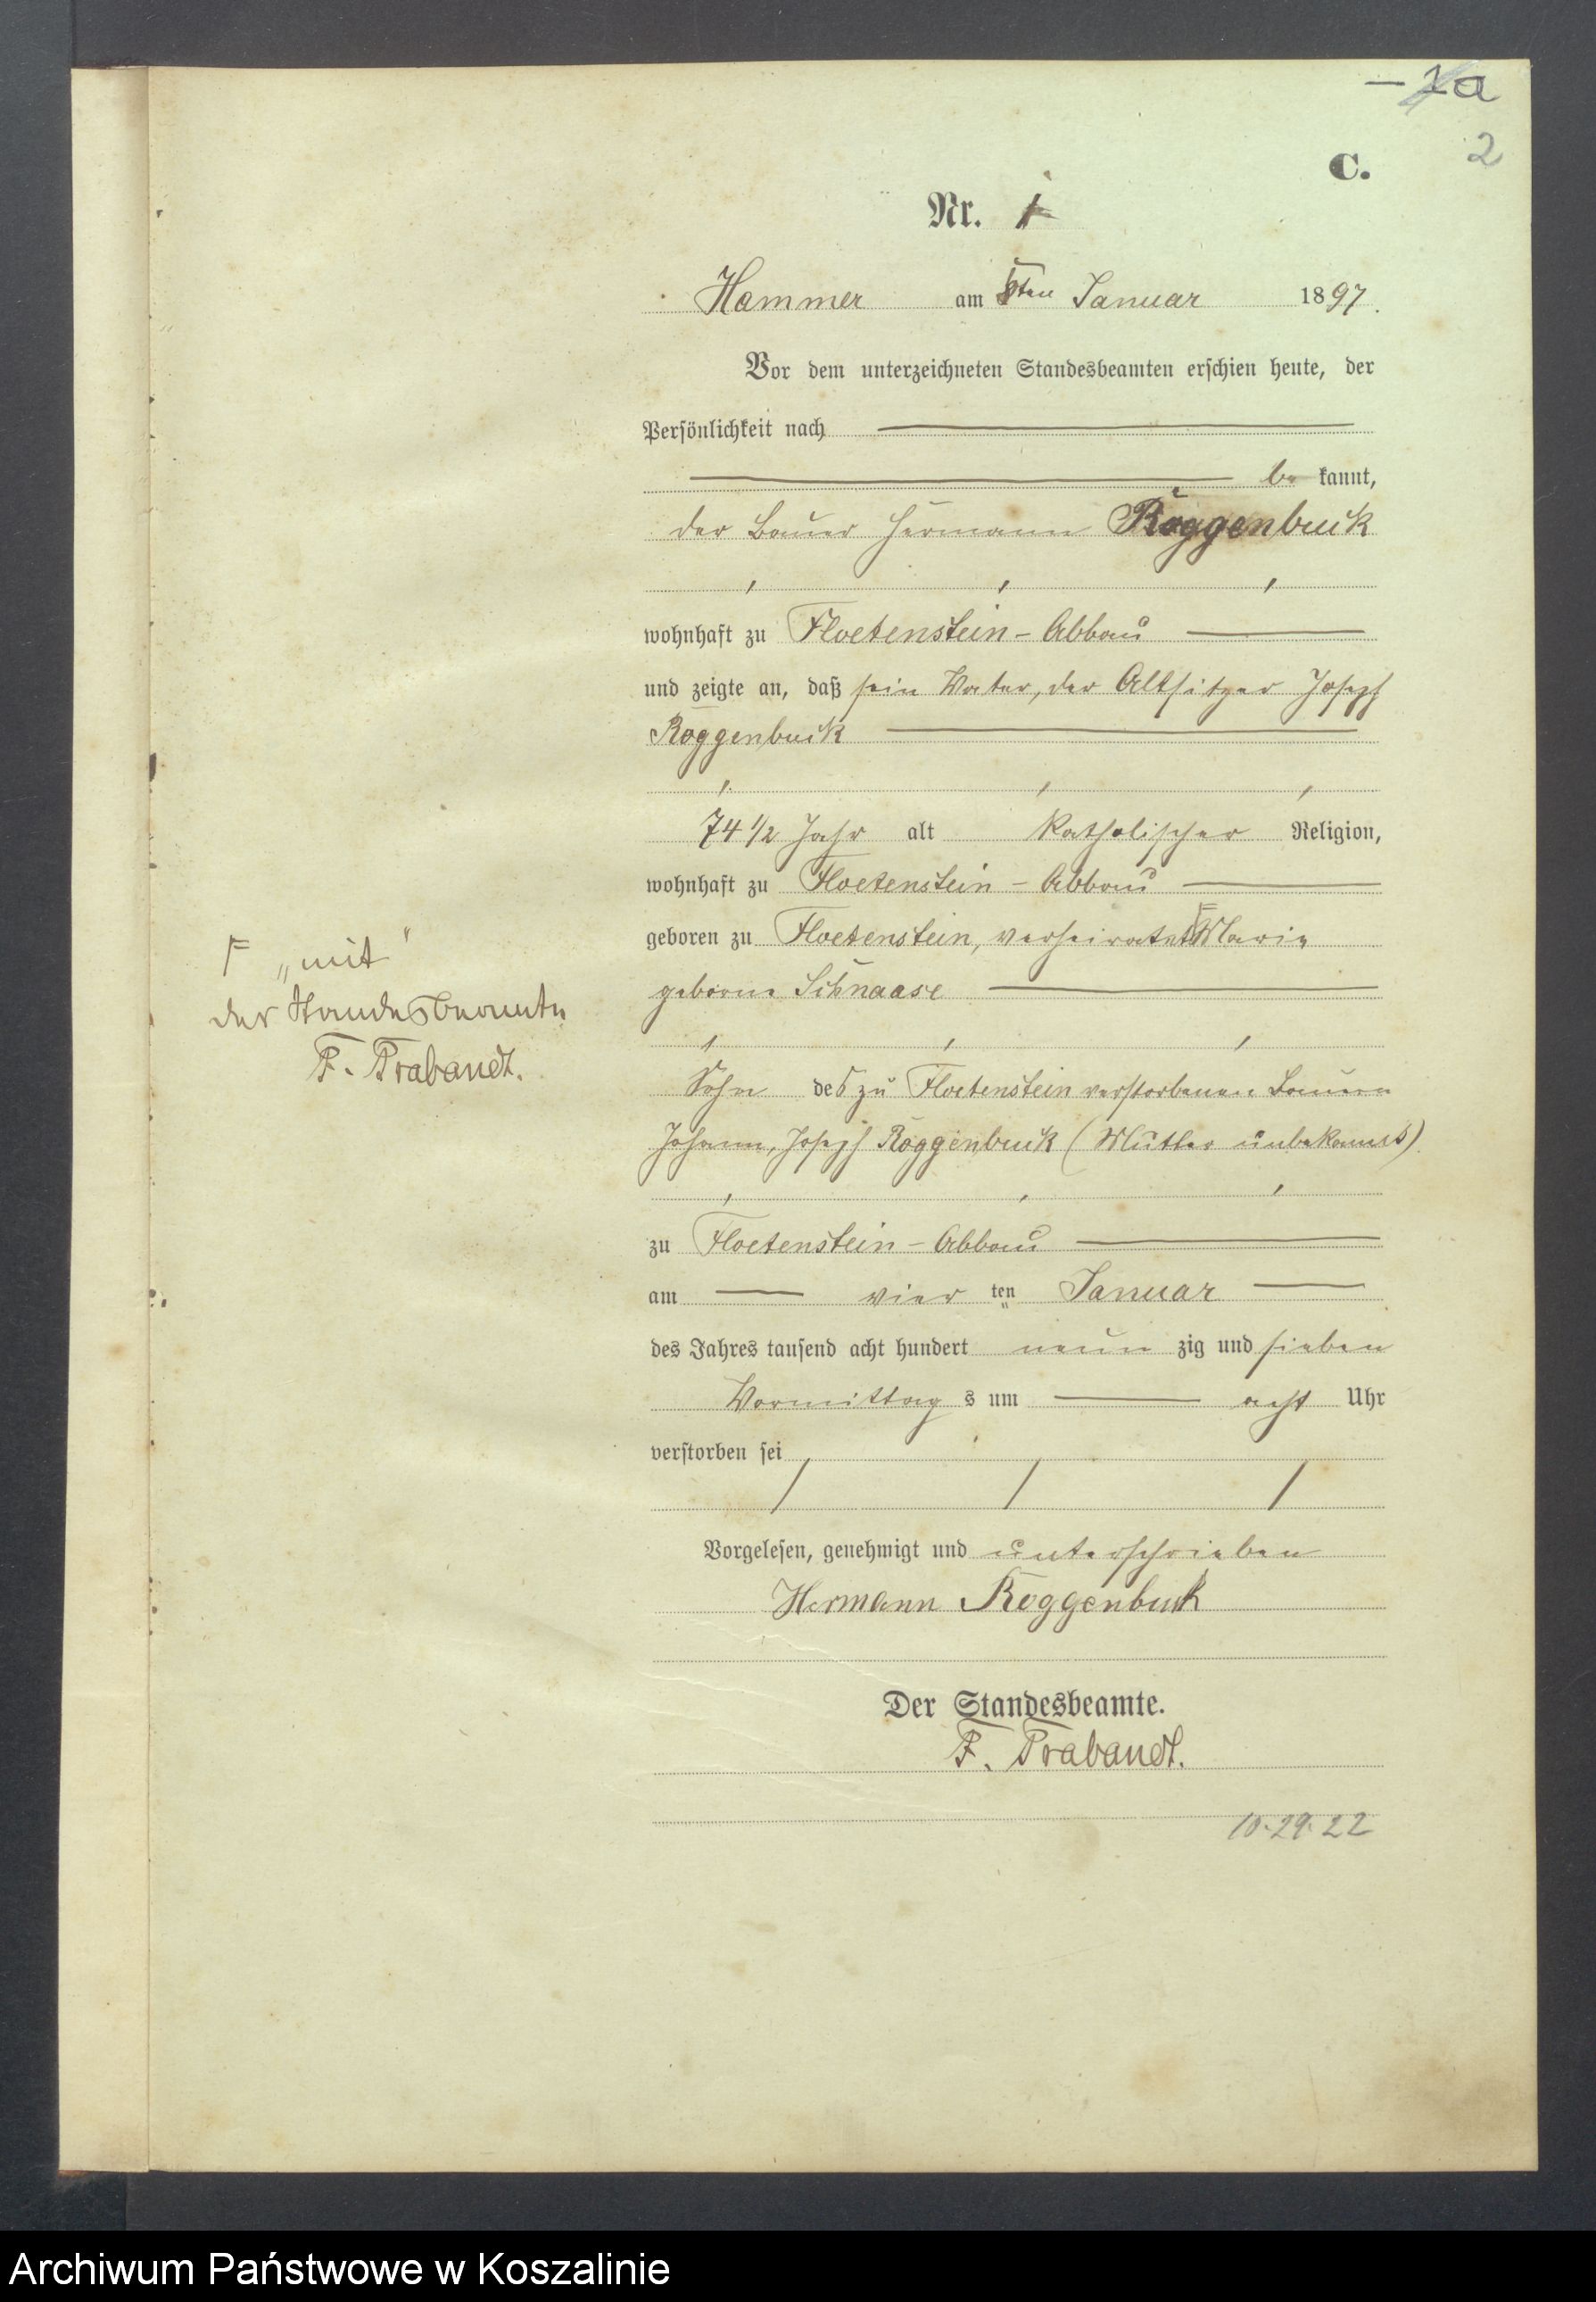 a
2
C.
Nr. 1
Hammer am 5ten Januar 1897.
Vor dem unterzeichneten Standesbeamten erschien heute, der
Persönlichkeit nach
be kannt,
der Bauer Hermann Roggenbuck
wohnhaft zu Floetenstein - Abbau
und zeigte an, daß sein Vater, der Altsitzer Joseph
Roggenbuck
74 1/2 Jahr alt katholischer Religion,
wohnhaft zu Floetenstein - Abbau
geboren zu Floetenstein, verheiratet Ͱ Marie
geborne Schnaase
Ͱ „mit"
der Standesbeamte
F. Trabandt.
Sohn des zu Floetenstein verstorbenen Bauern
Johann, Joseph Roggenbuck (Mutter unbekannt)
zu Floetenstein - Abbau
am vier ten Januar
des Jahres tausend acht hundert neun zig und sieben
Vormittag s um acht Uhr
verstorben sei
Vorgelesen, genehmigt und unterschrieben
Hermann Roggenbuck
Der Standesbeamte.
F. Trabandt.
10.29.22
Archiwum Państwowe w Koszalinie